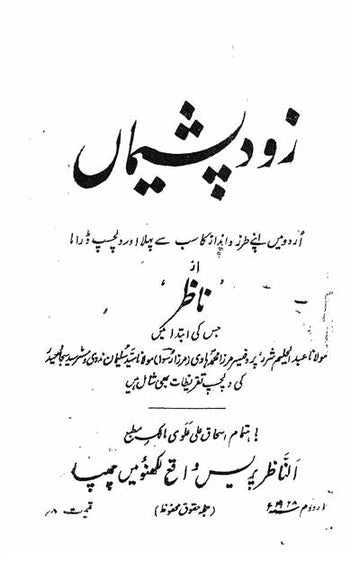 زود پشیماں
اُردو میں اپنے طرز و انداز کا سب سے پہلا اور دلچسپ ڈراما
از
ناظر
جس کی ابتدا میں
مولانا عبد الحلیم شرر پروفیسر مرزا محمد ہادی (مرزا رسوا) مولانا سید سلیمان ندوی و مسٹر سید
کی دلچسپ تقریظات بھی شامل ہیں
باہتمام اسحاق علی علوی مالک مطبع
الناظر پریس واقع لکھنؤ میں چھپا
۱۹۲۸ء
(جملہ حقوق محفوظ)
قیمت